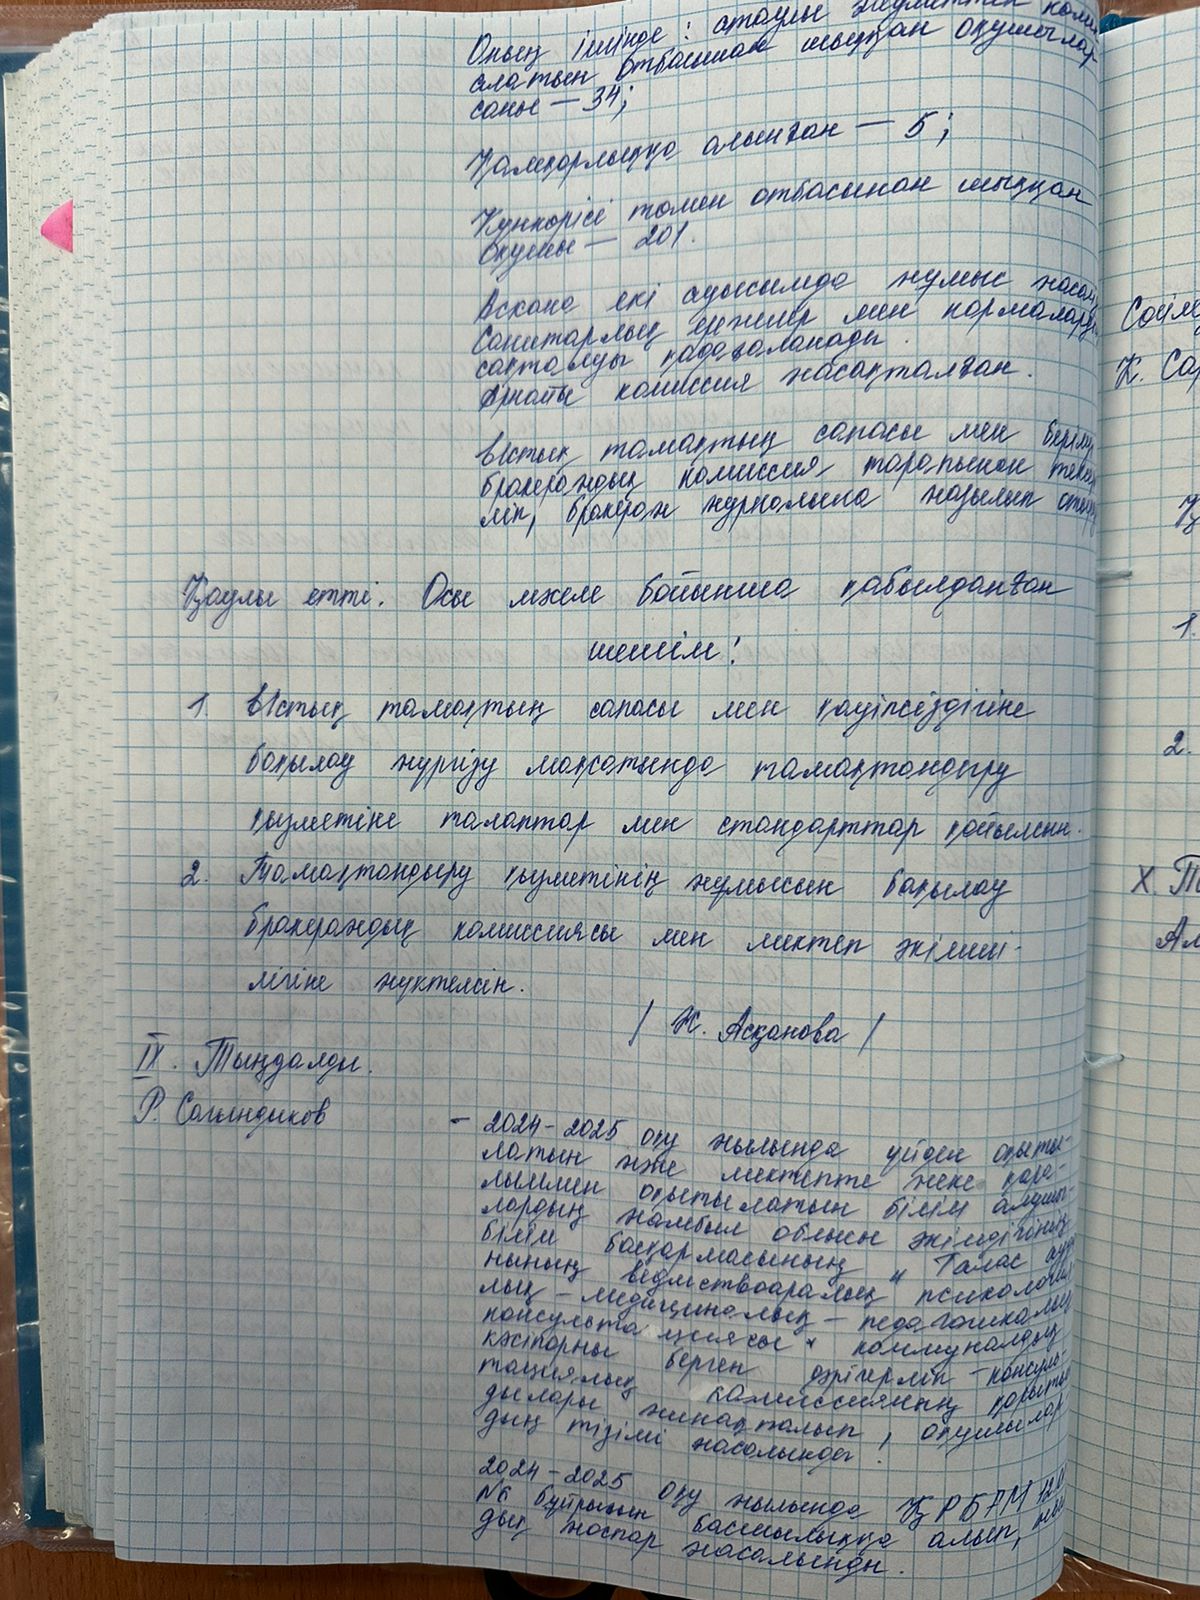 Оның ішінде: атаулы әлеуметтік көмек
алатын отбасынан шыққан оқушылар
саны – 34;
Қамқорлыққа алынған – 5;
Күнкөрісі төмен отбасынан шыққан
оқушы – 201.
Асхана екі ауысымда жұмыс жасай
Санитарлық ережелер мен нормалард
сақталуы қадағаланады.
Арнайы комиссия жасақталған.
Ыстық тамақтың сапасы мен берілу
бракераждық комиссия тарапынан текс
ліп, бракераж журналына жазылып отыр
Қаулы етті. Осы мәселе бойынша қабылданған
шешім:
1. Ыстық тамақтың сапасы мен қауіпсіздігіне
бақылау жүргізу мақсатында тамақтандыру
қызметіне талаптар мен стандарттар қойылсын.
2. Тамақтандыру қызметінің жұмысын бақылау
бракераждық комиссиясы мен мектеп әкімші-
лігіне жүктелсін.
/ К. Асқанова /
IX. Тыңдалды.
Р. Сағындиков
– 2024-2025 оқу жылында үйден оқыты-
латын және мектепте жеке қара-
лымен оқытылатын білім алушы-
лардың Жамбыл облысы әкімдігінің
білім басқармасының "Талас ауда
нының ведмствоаралық психология
лық – медициналық – педагогикалық
консультациясы" коммуналдық
кәсіпорны берген дәрігерлік – консуль-
тациялық комиссияның қорытын
дылары жинақталып, оқушылар
дың тізімі жасалынды.
2024-2025 оқу жылында ҚРБҒМ 12.01
№6 бұйрығын басшылыққа алып,
дық жоспар жасалынды.
Сейм
К. Сар
Қ
1.
2.
X. Т
Ал